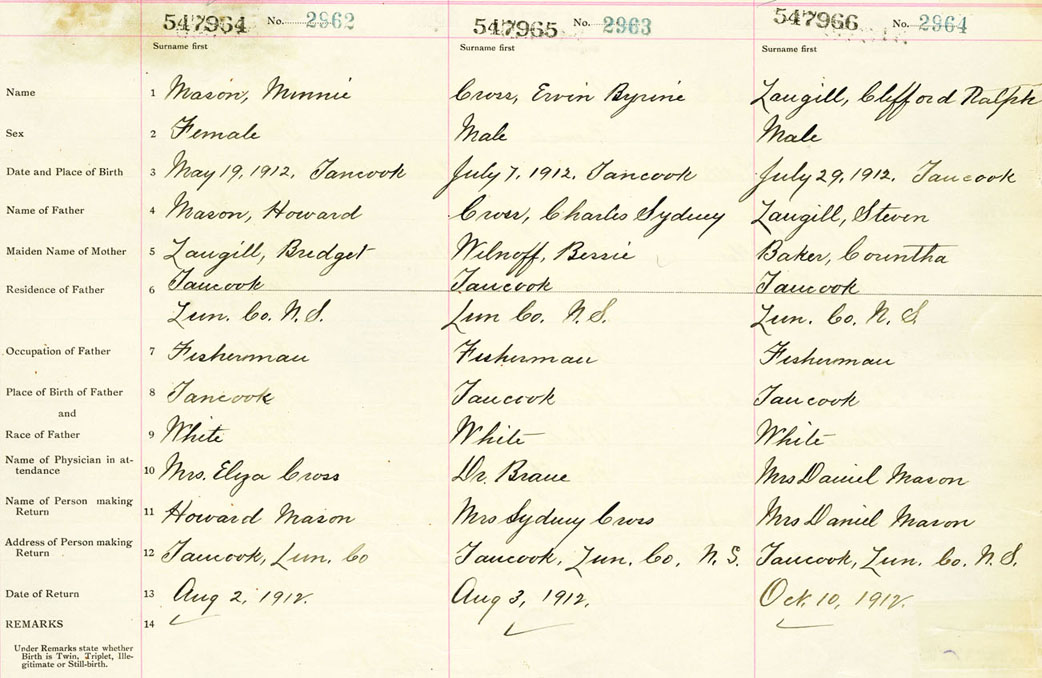 547964 No. 2962 547965 No. 2963 547966 No. 2964
Surname first Surname first Surname first
Name 1 Mason, Minnie Cross, Ervin Byrine Langill, Clifford Ralph
Sex 2 Female Male Male
Date and Place of Birth 3 May 19, 1912. Tancook July 7, 1912. Tancook July 29, 1912. Tancook
Name of Father 4 Mason, Howard Cross, Charles Sydney Langill, Steven
Maiden Name of Mother 5 Langill, Bridget Wilnoff, Bessie Baker, Corintha
Residence of Father 6 Tancook Tancook Tancook
Lun. Co. N.S. Lun Co. N.S. Lun. Co. N.S.
Occupation of Father 7 Fisherman Fisherman Fisherman
Place of Birth of Father 8 Tancook Tancook Tancook
and
Race of Father 9 White White White
Name of Physician in at-
tendance 10 Mrs. Eliza Cross Dr. Mrs Daniel Mason
Name of Person making
Return 11 Howard Mason Mrs Sydney Cross Mrs Daniel Mason
Address of Person making
Return 12 Tancook, Lun. Co Tancook, Lun. Co. N.S. Tancook, Lun. Co. N.S.
Date of Return 13 Aug 2, 1912. Aug 3, 1912. Oct. 10, 1912.
REMARKS 14
Under Remarks state whether
Birth is Twin, Triplet, Ille-
gitimate or Still-birth.